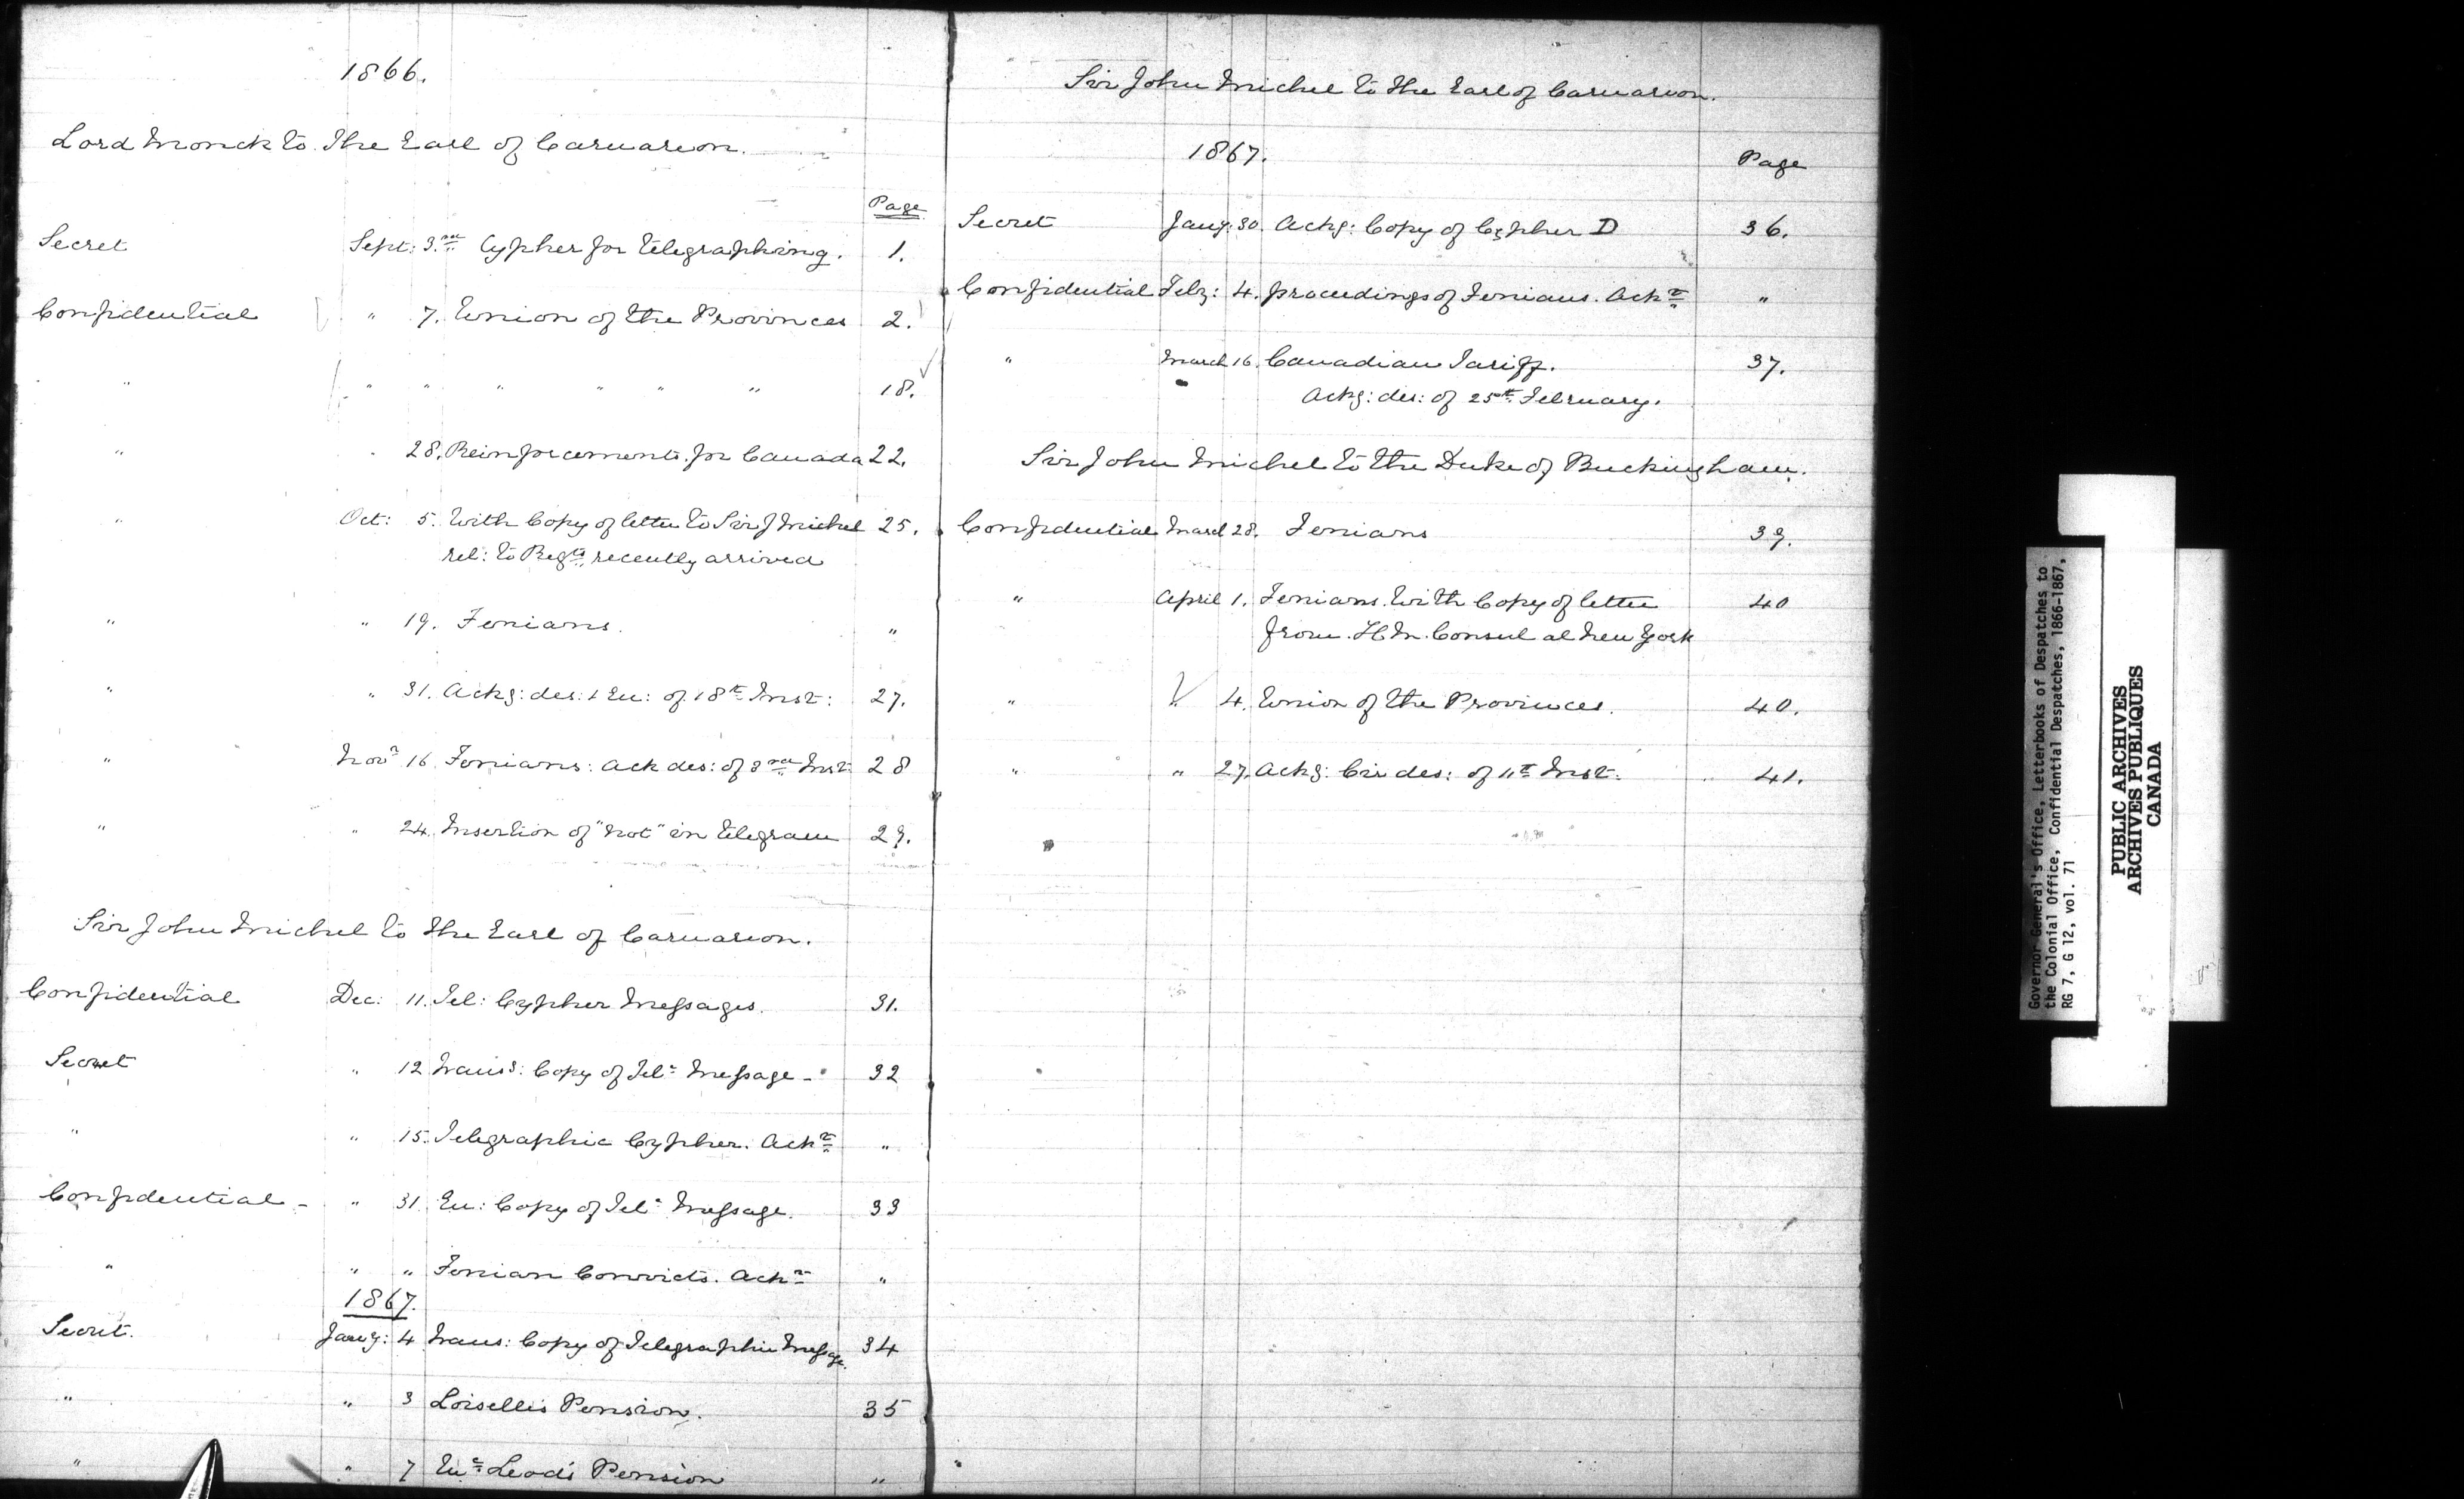 1866.
Lord Monck to The Earl of Carnarvon.
Page
Secret Sept: 3.rd Cypher for telegraphing. 1.
Confidential " 7. Union of the Provinces 2.
" " " " " " " 18.
" " 28. Reinforcements for Canada 22.
" Oct: 5. With Copy of letter to Sir J Michel 25.
rel: to Regts recently arrived
" " 19. Fenians. "
" " 31. Ackg: des: & En: of 18th Inst: 27.
" Novr 16. Fenians: Ack des: of 3rd Inst: 28
" " 24. Insertion of "not" in telegram 29.
Sir John Michel to the Earl of Carnarvon.
Confidential Dec: 11. Tel: Cypher Messages. 31.
Secret " 12 Trans: Copy of Tel: Message - 32
" " 15. Telegraphic Cypher. Ackr "
Confidential - " 31. En: Copy of Tel: Message. 33
" " " Fenian Convicts. Ackr "
1867.
Secret. Jany: 4 Trans: Copy of Telegraphic Message. 34
" " 3 Loiselle's Pension. 35
" " 7 Leod's Pension "
Sir John Michel to the Earl of Carnarvon.
1867. Page
Secret Jany. 30. Ackg: Copy of Cypher D 36.
Confidential Feby: 4. proceedings of Fenians. Ackr "
" March 16. Canadian Tariff. 37.
Ackg: des: of 25th February.
Sir John Michel to the Duke of Buckingham.
Confidential March 28. Fenians 39.
" April 1. Fenians. With Copy of letter 40
from H.M. Consul at New York
" " 4. Union of the Provinces. 40.
" " 27. Ackg: Cir des: of 11th Inst: 41.
Governor General's Office, Letterbooks of Despatches to
the Colonial Office, Confidential Despatches, 1866-1867,
RG 7, G 12, vol. 71
PUBLIC ARCHIVES
ARCHIVES PUBLIQUES
CANADA